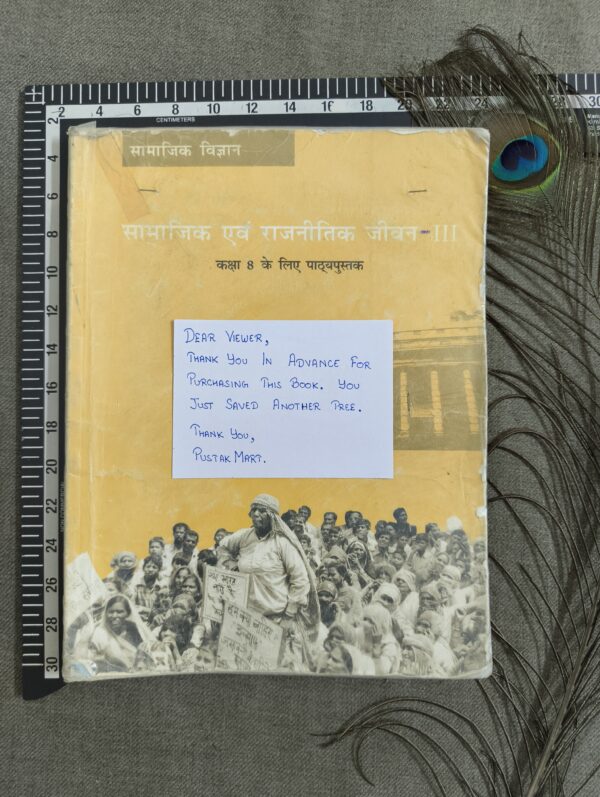 2 4 6 8 10 12 14 16 18 20 22 24 28 30
CENTIMETERS
2
4
6
8
10
12
14
16
18
20
22
24
26
28
30
सामाजिक विज्ञान
सामाजिक एवं राजनीतिक जीवन-III
कक्षा 8 के लिए पाठ्यपुस्तक
DEAR VIEWER,
THANK YOU IN ADVANCE FOR
PURCHASING THIS BOOK. YOU
JUST SAVED ANOTHER TREE.
THANK YOU,
PUSTAK MART.